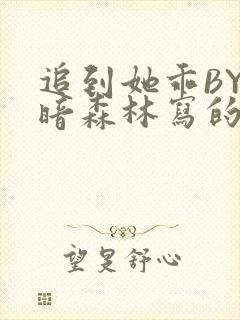 追到她乖BY
暗森林寫的
望旻舒心